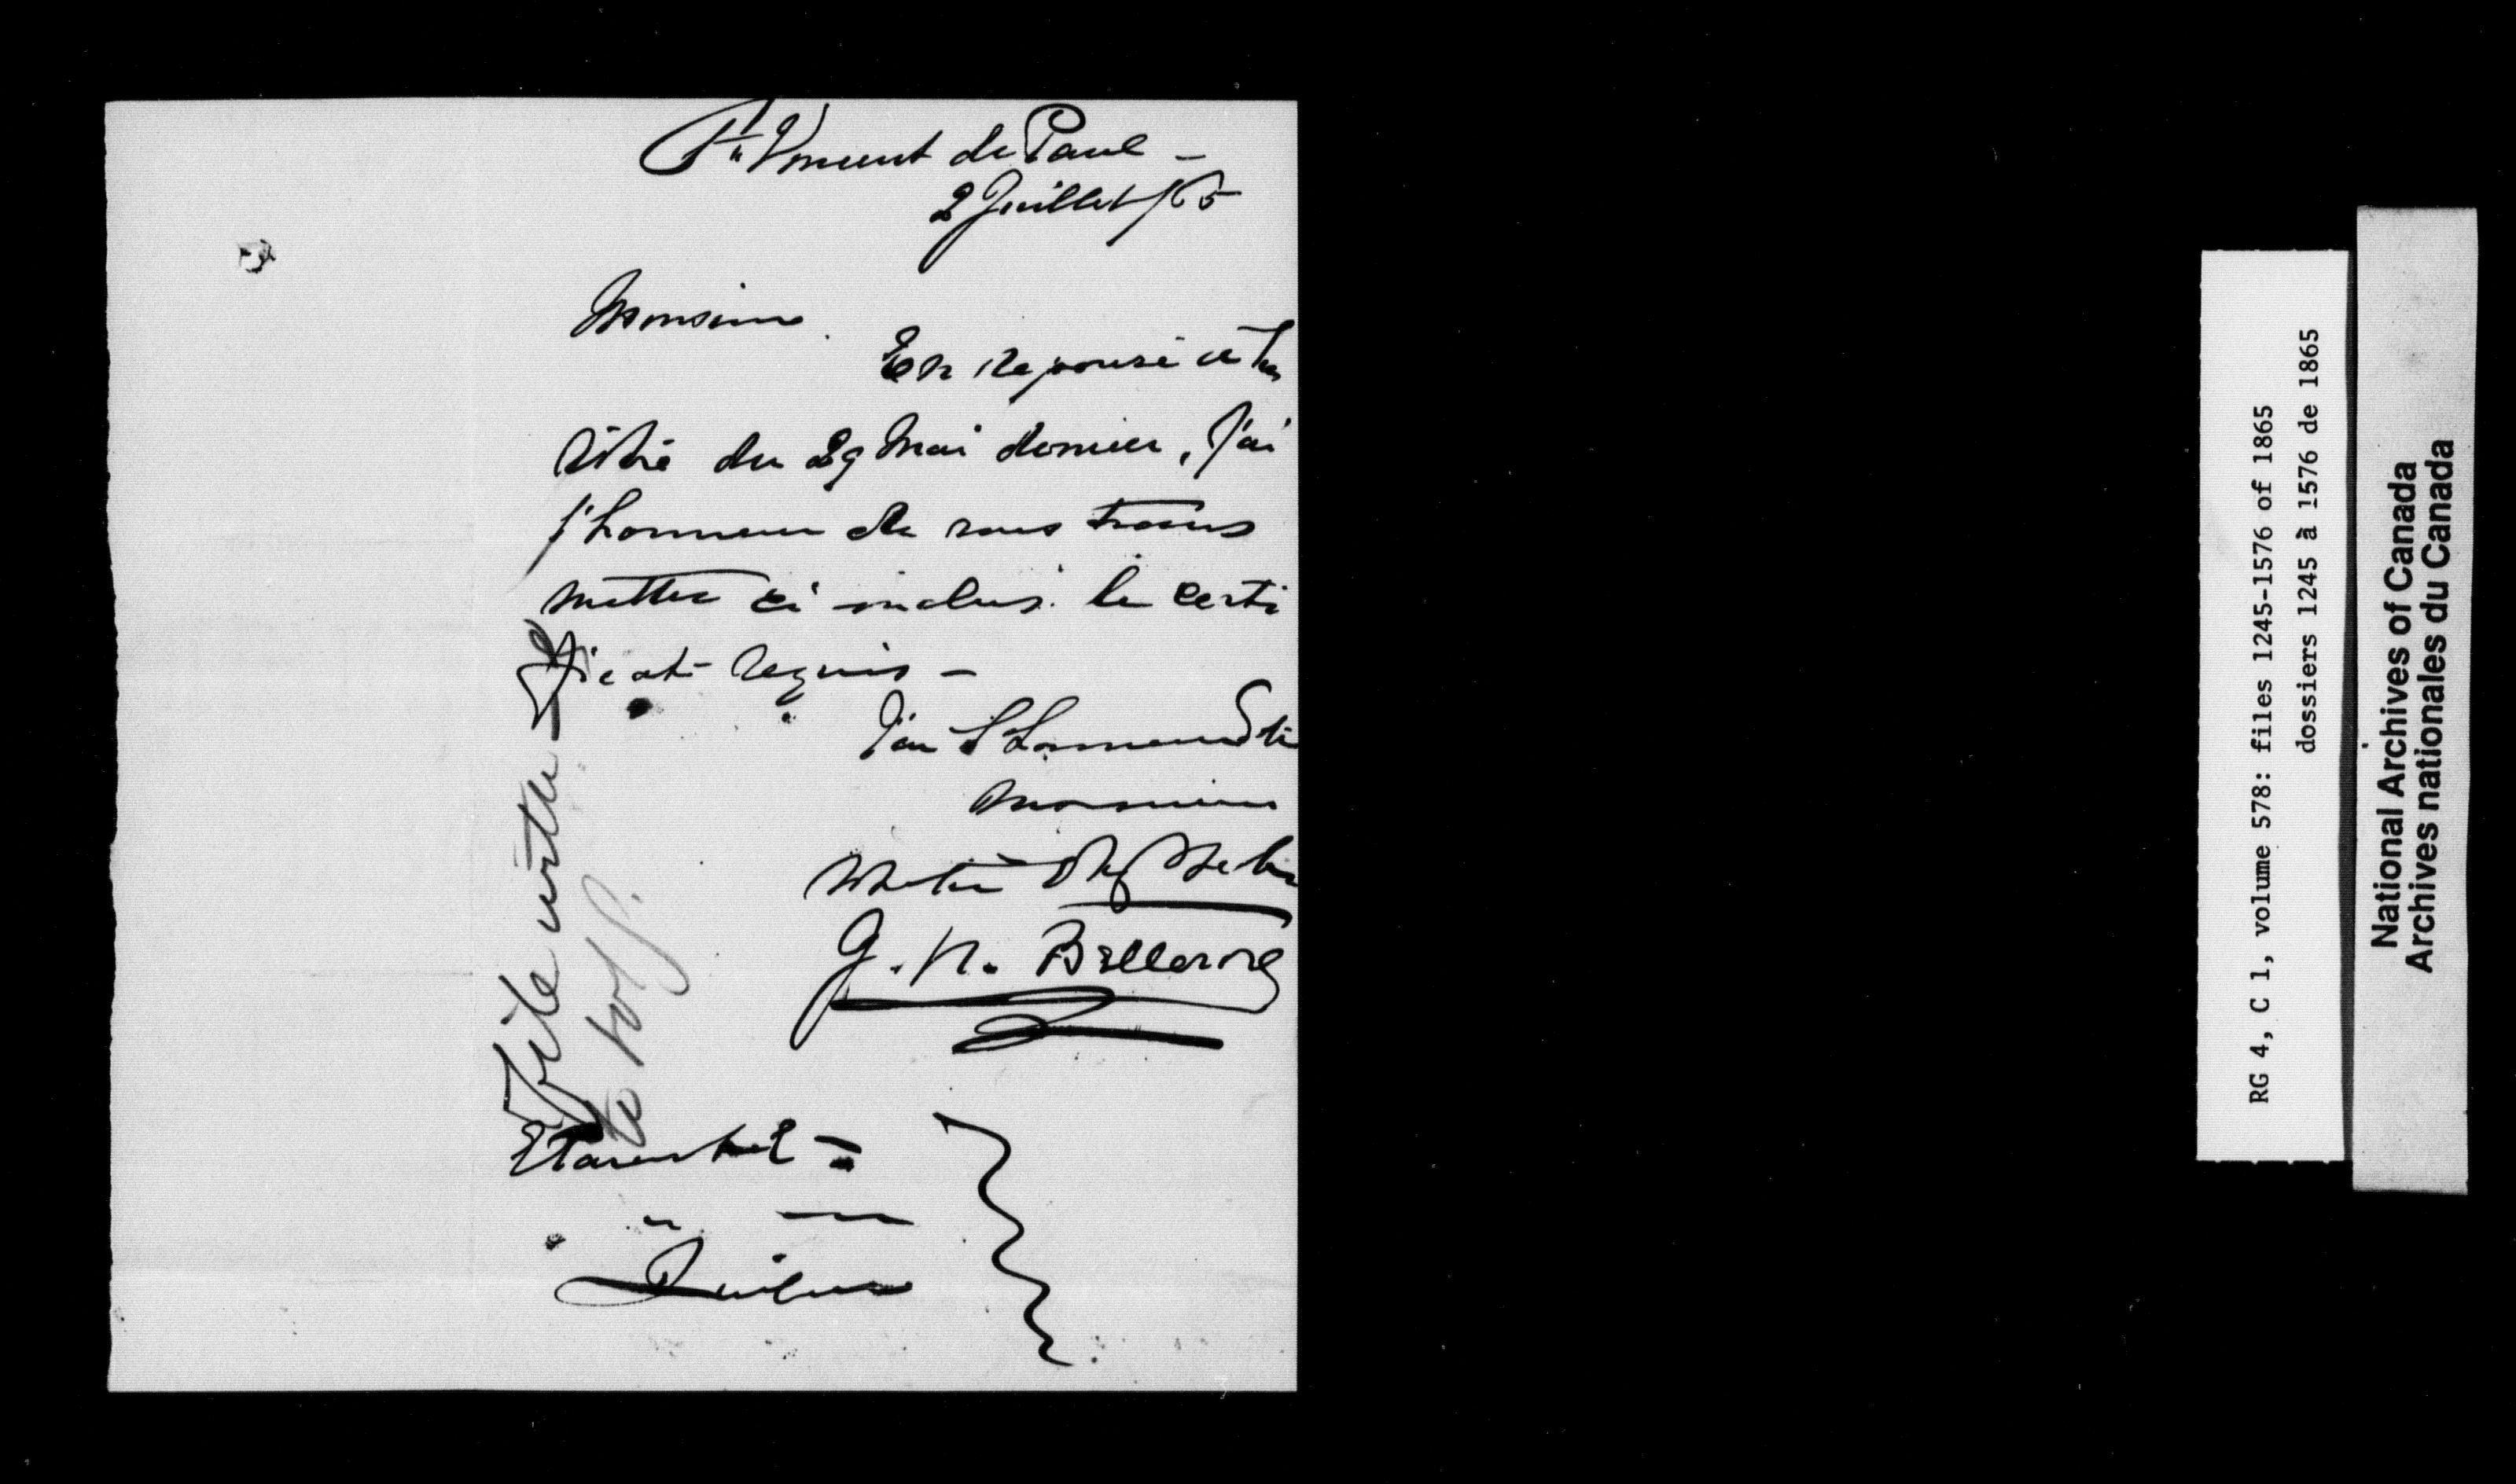 St Vincent de Paul -
2 Juillet /65
Monsieur
En reponse à la
vôtre du 29 Mai dernier, J'ai
l'honneur de vous trans
mettre ci inclus le certi
ficat requis -
J'ai l'honneur d'être
Monsieur
Votre
J. H. Bellerose
E Parent
Québec
File with
RG 4, C 1, volume 578: files 1245-1576 of 1865
dossiers 1245 à 1576 de 1865
National Archives of Canada
Archives nationales du Canada